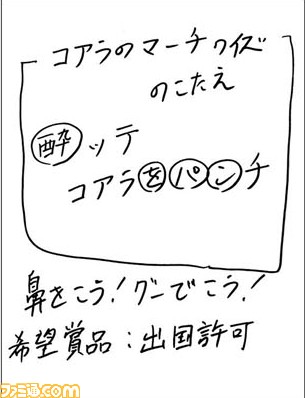 コアラのマーチクイズ
のこたえ
酔ッテ
コアラをパンチ
鼻きこう!グーでこう!
希望賞品:出国許可
ファミ通.com